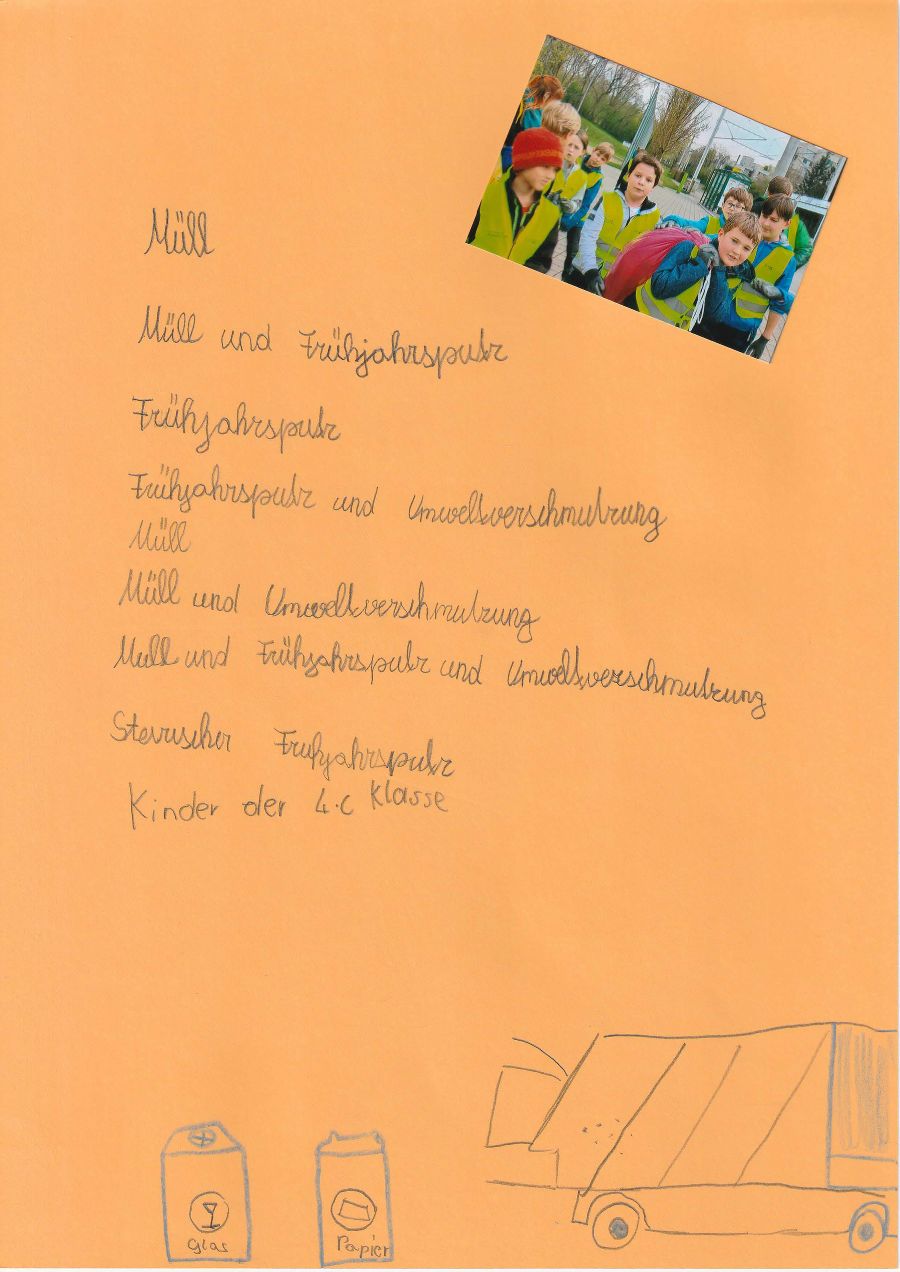 Müll
Müll und Frühjahrsputz
Frühjahrsputz
Frühjahrsputz und Umweltverschmutzung
Müll
Müll und Umweltverschmutzung
Mull und Frühjahrsputz und Umweltverschmutzung
Steirischer Fruhjahrsputz
Kinder der 4.c Klasse
Glas
Papier